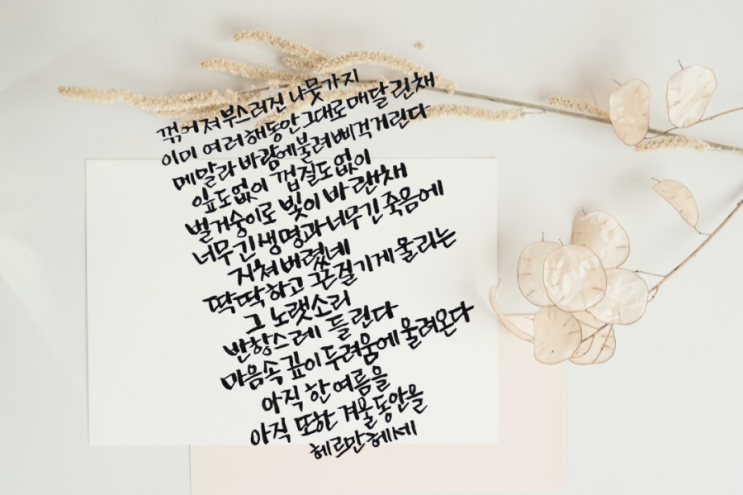 꺾어져 부스러진 나뭇가지
이미 여러 해동안 그대로 매달린채
메말라 바람에 불려 삐걱거린다
잎도없이 껍질도없이
벌거숭이로 빛이 바랜채
너무 긴 생명과 너무 긴 죽음에
지쳐버렸네
딱딱하고 끈질기게 울리는
그 노랫소리
반항스레 들린다
마음속 깊이 두려움에 울려온다
아직 한 여름을
아직 또한 겨울동안을
헤르만헤세